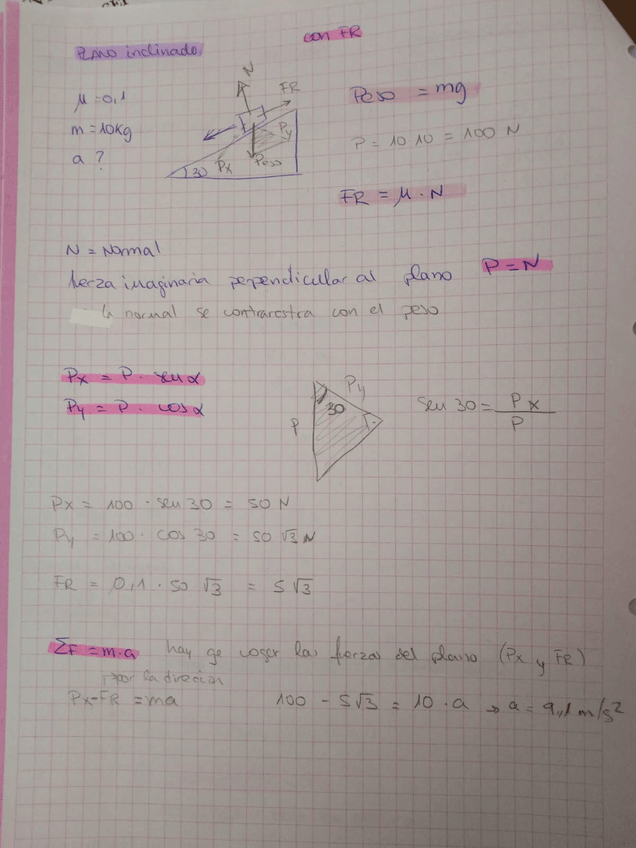 con FR
PLANO inclinado
μ = 0,1
m = 10Kg
a ?
N
FR
Py
Px
Peso
30
Peso = mg
P = 10 10 = 100 N
FR = μ · N
N = Normal
fuerza imaginaria perpendicular al plano P = N
↳ normal se contrarestra con el peso
Px = P · senα
Py = P · cosα
Py
30
P
sen 30 = Px / P
Px = 100 · sen 30 = 50 N
Py = 100 · cos 30 = 50 √3 N
FR = 0,1 · 50 √3 = 5 √3
ΣF = m·a hay qe coger las forzas del plano (Px y FR)
por la direcion
Px - FR = ma 100 - 5√3 = 10 · a → a = 9,1 m/s²